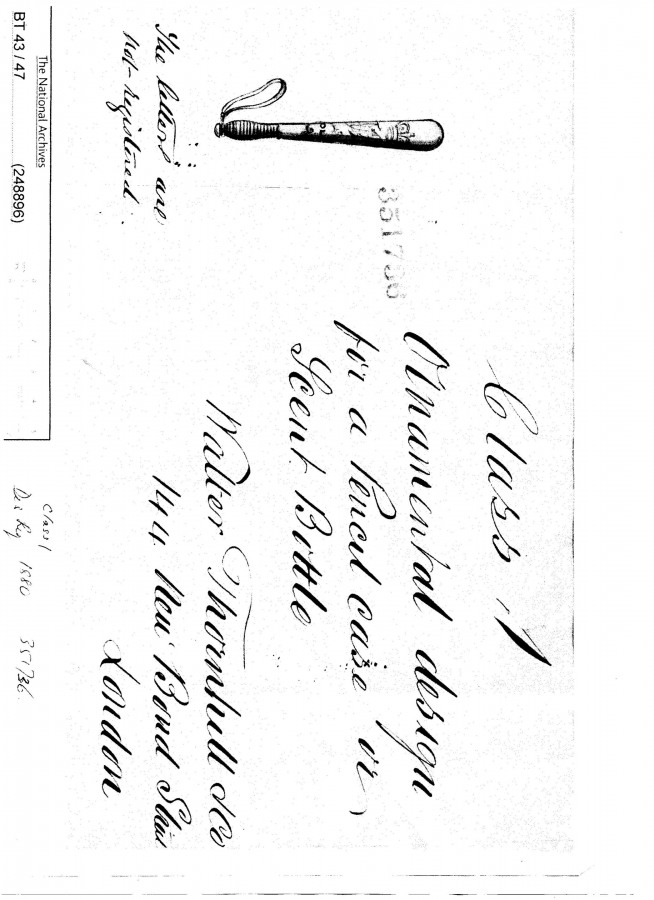 Class 1
Ornamental design
for a Pencil case or
Scent Bottle
Walter Thornhill & Co
144 New Bond
London
351736
The letters are
not registered.
The National Archives
BT 43 / 47 (248896)
Class 1
Des Reg 1880 351736